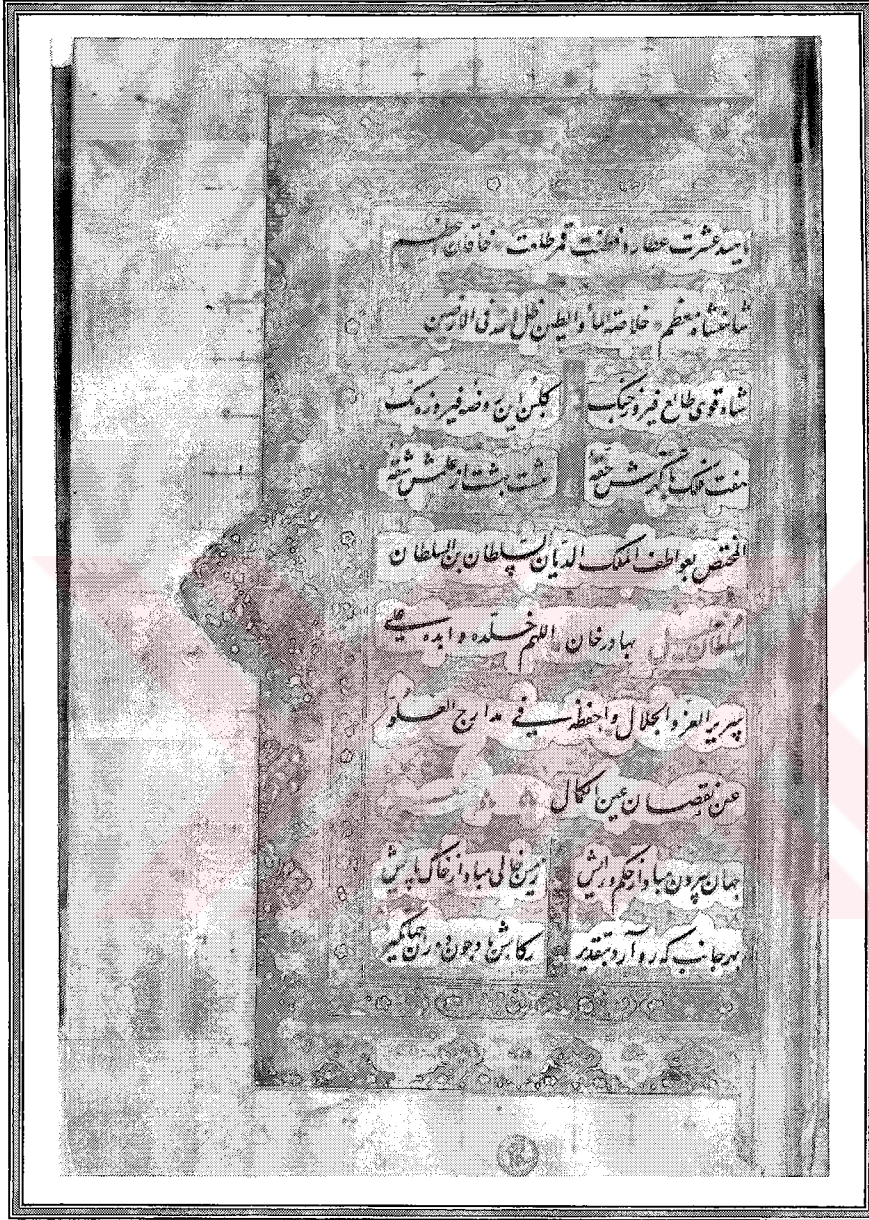 ناهید عشرت عطارد فطنت قمر طلعت خاقان اعظم
شاهنشاه معظم خلاصة الماء والطین ظل الله فی الارضین
شاه قوی طالع فیروز جنک گلبن این روضه فیروزه رنک
هفت فلک با گهرش حقه هشت بهشت از علمش شقه
المختص بعواطف الملک الدیان السلطان بن السلطان
سلطان بهادر خان اللهم خلده و ابده علی
سریر العز والجلال واحفظه فی مدارج العلو
عن نقصان عین الکمال
جهان بیرون مباد از حکم و رایش زمین خالی مباد از خاک پایش
بهر جانب که رو آرد بتقدیر رکابش باد چون دوران جهانگیر